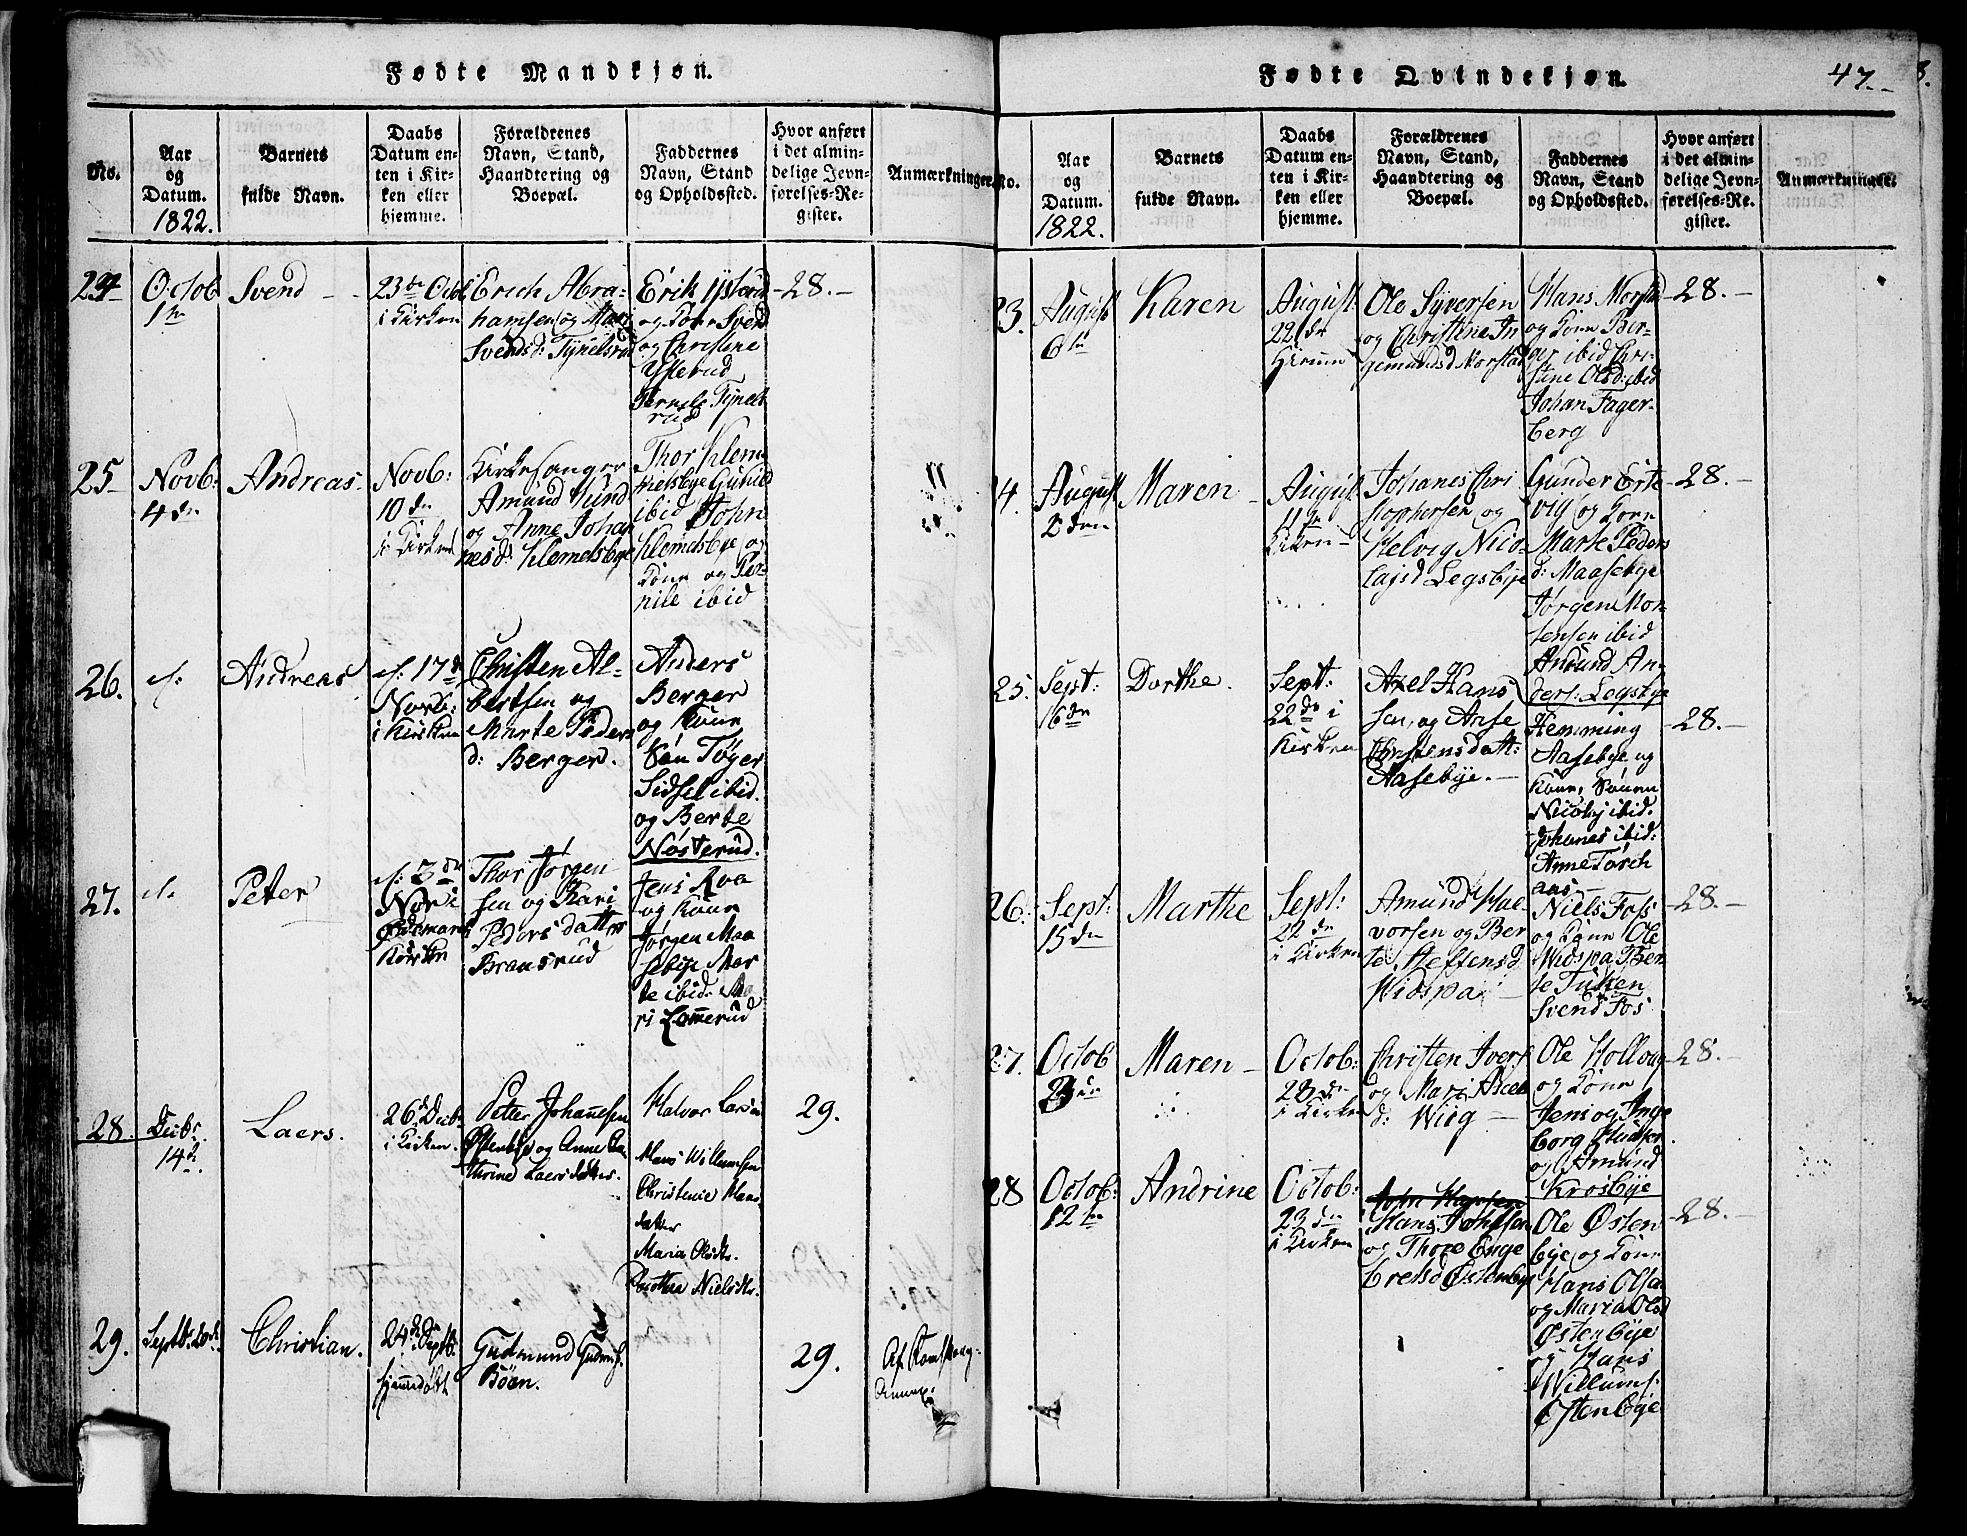 Fødte Mandkjøn.
No.
Aar
og
Datum.
1822.
Barnets
fulde Navn.
Daabs
Datum en-
ten i Kir-
ken eller
hjemme.
Forældrenes
Navn, Stand,
Haandtering og
Boepæl.
Faddernes
Navn, Stand
og Opholdssted.
Hvor anført
i det almin-
delige Jevn-
førelses-Re-
gister.
Anmærkninger.
24
Octob
1ste
Svend
23de Octob
i Kirken
Erich Abra-
hamsen og Mari
Svends d:
Erik
og Kone Svend
og Christine
Ysterud
25
Novb:
4de
Andreas
Novb:
10de
i Kirken
Kirkesanger
Amund Lund
og Anne Johan
nesd: Klemetsbye
Thor Klem-
metsbye
ibid John
Klemetsbye og
Kone og Per-
nile ibid
26.
Andreas
17d
Novb:
i Kirken
Christen Al-
bertsen og
Marte Peders
d: Berger.
Anders
Berger
og Kone
Tøger
Sidsel ibid.
og Berte
Nøsterud.
27.
Peter
3de
Novb:
Kirken
Thor Jørgen
sen og Kari
Peders datter
Bransrud
Jens Roa
og Kone
Jørgen Maa
sebye Mar
te ibid. Ma
ri Lomerud
28.
Decbr.
14d.
Laers.
26d Decb.
i Kirken.
Peter Johannesen
Østenbye og Anne Ca-
thrine Laers datter.
Halvor Larsen
Hans Willumsen
Christence Hans
datter
Maria Olsdtr.
Dorthea Nielsdtr.
29.
29.
Septbr. 20d.
Christian.
24d Septb.
hjemmedøbt
Gudmund Gudm.
Böen.
29.
Af Romskoug
28.
Fødte Qvindekjøn.
47.
No.
Aar
og
Datum.
1822.
Barnets
fulde Navn.
Daabs
Datum en-
ten i Kir-
ken eller
hjemme.
Forældrenes
Navn, Stand,
Haandtering og
Boepæl.
Faddernes
Navn, Stand
og Opholdssted.
Hvor anført
i det almin-
delige Jevn-
førelses-Re-
gister.
Anmærkninger.
23.
August
6te
Karen
August
22de
Ole Syversen
og Christine In
gemundsd Morstad
Hans Morstad
og Kone Ber-
ger ibid Chri-
stine Olsd: ibid
Johan Fager-
berg
28.
24.
August
2den
Maren
August
11te
Kirken
Johanes Chri
stophersen og
Helvig Nico-
lajsd Legsbye
Gunder Erte-
vig og Kone
Marte Peders
d: Maasebye
Jørgen Mor
tensen ibid
Amund An-
ders: Legsbye
28.
25.
Sept:
16de
Dorthe.
Sept:
22de i
Kirken
Axel Hans
sen, og Anne
Christensdatt:
Aasebye.
Hemming
Aasebye og
Kone,
Nicolaj ibid.
Johanes ibid:
Anne
28.
26.
Sept:
15de
Marthe
Sept:
22de
i Kirken
Amund Hal-
vorsen og Ber
te Steffensd
Widspa
Niels Foss
og Kone Ole
Widspa Ber-
te
Svend Fos
28.
27.
Octob
Maren
Octob:
i Kirken
Christen Ivers
og Mari Axels
d: Wiig
Ole
og Kone
Jens og Inge
borg
og Amund
Krosbye
28.
28
Octob:
12te
Andrine
Octob:
23de
i Kirken
Hans Johnsen
og Thore Enge
bretsd Østenbye
Ole Østen
bye, og Kone
Hans Olsen
og Maria Olsd
Østenbye
og Hans
Willums:
Østenbye
28.